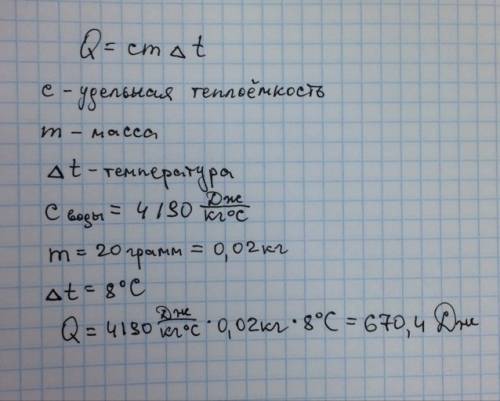 Q = cm Δt
c - удельная теплоёмкость
m - масса
Δt - температура
C воды = 4190 Дж/кг°C
m = 20 грамм = 0,02 кг
Δt = 8°C
Q = 4190 Дж/кг°C · 0,02 кг · 8°C = 670,4 Дж